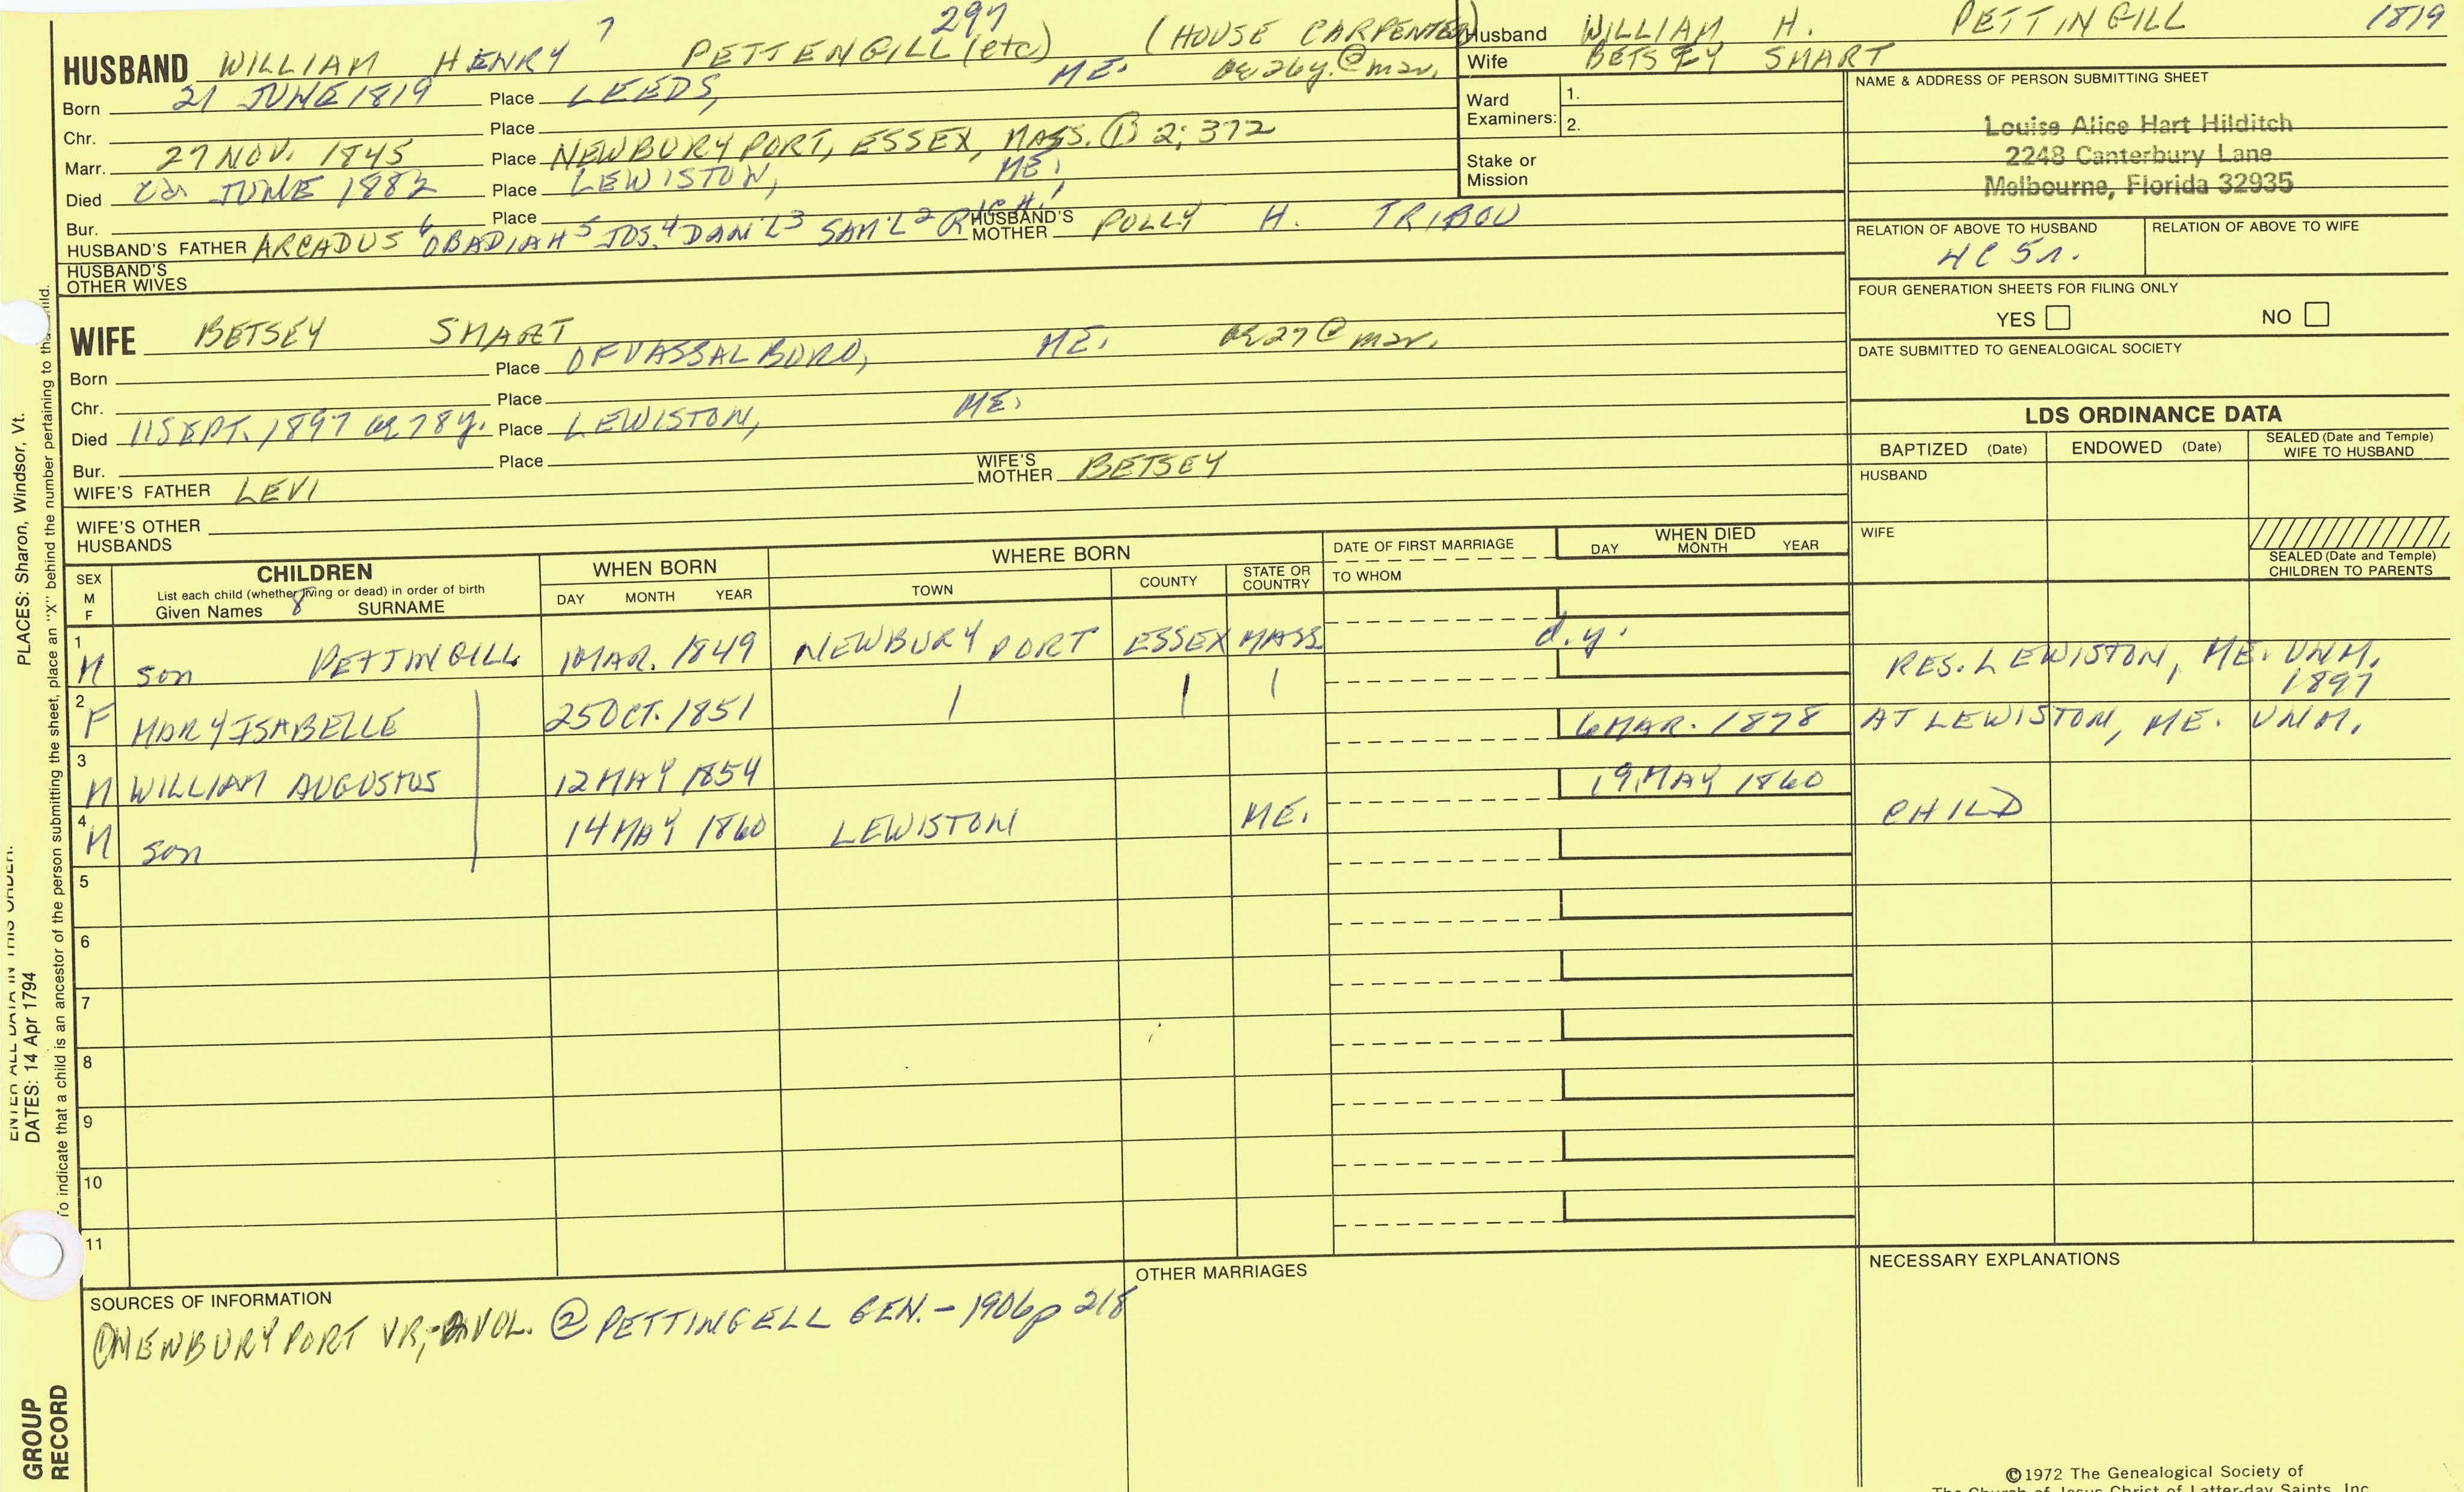 297
HUSBAND WILLIAM HENRY 7 PETTENGILL (etc) (HOUSE CARPENTER)
Born 21 JUNE 1819 Place LEEDS, ME. ae 26y. @ mar.
Chr. Place
Marr. 27 NOV. 1845 Place NEWBURYPORT, ESSEX, MASS. ① 2; 372
Died ca. JUNE 1882 Place LEWISTON, ME.
Bur. Place
HUSBAND'S FATHER ARCADUS 6 OBADIAH 5 JOS. 4 DAN'L 3 SAM'L 2 RICH. 1 HUSBAND'S MOTHER POLLY H. TRIBOU
HUSBAND'S OTHER WIVES
Husband WILLIAM H. PETTINGILL 1819
Wife BETSEY SMART
Ward Examiners: 1.
2.
Stake or Mission
NAME & ADDRESS OF PERSON SUBMITTING SHEET
Louise Alice Hart Hilditch
2248 Canterbury Lane
Melbourne, Florida 32935
RELATION OF ABOVE TO HUSBAND RELATION OF ABOVE TO WIFE
4C 5r.
FOUR GENERATION SHEETS FOR FILING ONLY
YES NO
DATE SUBMITTED TO GENEALOGICAL SOCIETY
WIFE BETSEY SMART
Born Place OF VASSALBORO, ME. ae 27 @ mar.
Chr. Place
Died 11 SEPT. 1897 ae 78y. Place LEWISTON, ME.
Bur. Place
WIFE'S FATHER LEVI WIFE'S MOTHER BETSEY
WIFE'S OTHER HUSBANDS
LDS ORDINANCE DATA
BAPTIZED (Date) ENDOWED (Date) SEALED (Date and Temple) WIFE TO HUSBAND
HUSBAND
WIFE
SEALED (Date and Temple) CHILDREN TO PARENTS
SEX M F CHILDREN WHEN BORN WHERE BORN DATE OF FIRST MARRIAGE WHEN DIED
List each child (whether living or dead) in order of birth
Given Names 8 SURNAME DAY MONTH YEAR TOWN COUNTY STATE OR COUNTRY TO WHOM DAY MONTH YEAR
1 M son PETTINGILL 1 MAR. 1849 NEWBURYPORT ESSEX MASS d.y.
RES. LEWISTON, ME. UNM. 1897
2 F MARY ISABELLE 25 OCT. 1851
6 MAR. 1878 AT LEWISTON, ME. UNM.
3 M WILLIAM AUGUSTUS 12 MAY 1854
19 MAY 1860 CHILD
4 M son 14 MAY 1860 LEWISTON ME.
5
6
7
8
9
10
11
SOURCES OF INFORMATION
① NEWBURYPORT VR; 2 VOL. ② PETTINGELL GEN. - 1906 p 218
OTHER MARRIAGES
NECESSARY EXPLANATIONS
©1972 The Genealogical Society of
The Church of Jesus Christ of Latter-day Saints, Inc.
ENTER ALL DATA IN THIS ORDER:
DATES: 14 Apr 1794 PLACES: Sharon, Windsor, Vt.
To indicate that a child is an ancestor of the person submitting the sheet, place an "X" behind the number pertaining to that child.
GROUP
RECORD